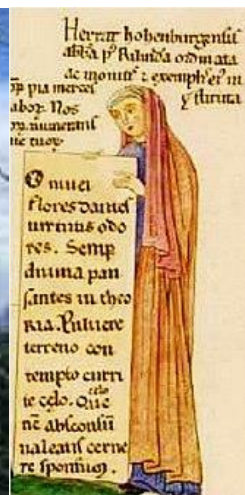 Herrat hohenburgensis
abba p⁹ Rilinda ordinata
ac monit⁹ ⁊ exempl' ei⁹ in
stituta
pia merces
labor. Nos
numerans
O niuei
flores dantes
uirtutis odo
res. Semp
diuina pau
santes in theo
ria. Puluere
terreno con
tempto curri
te celo. Que
celo
nc̄ absconsū
ualeatis cerne
re sponsum.